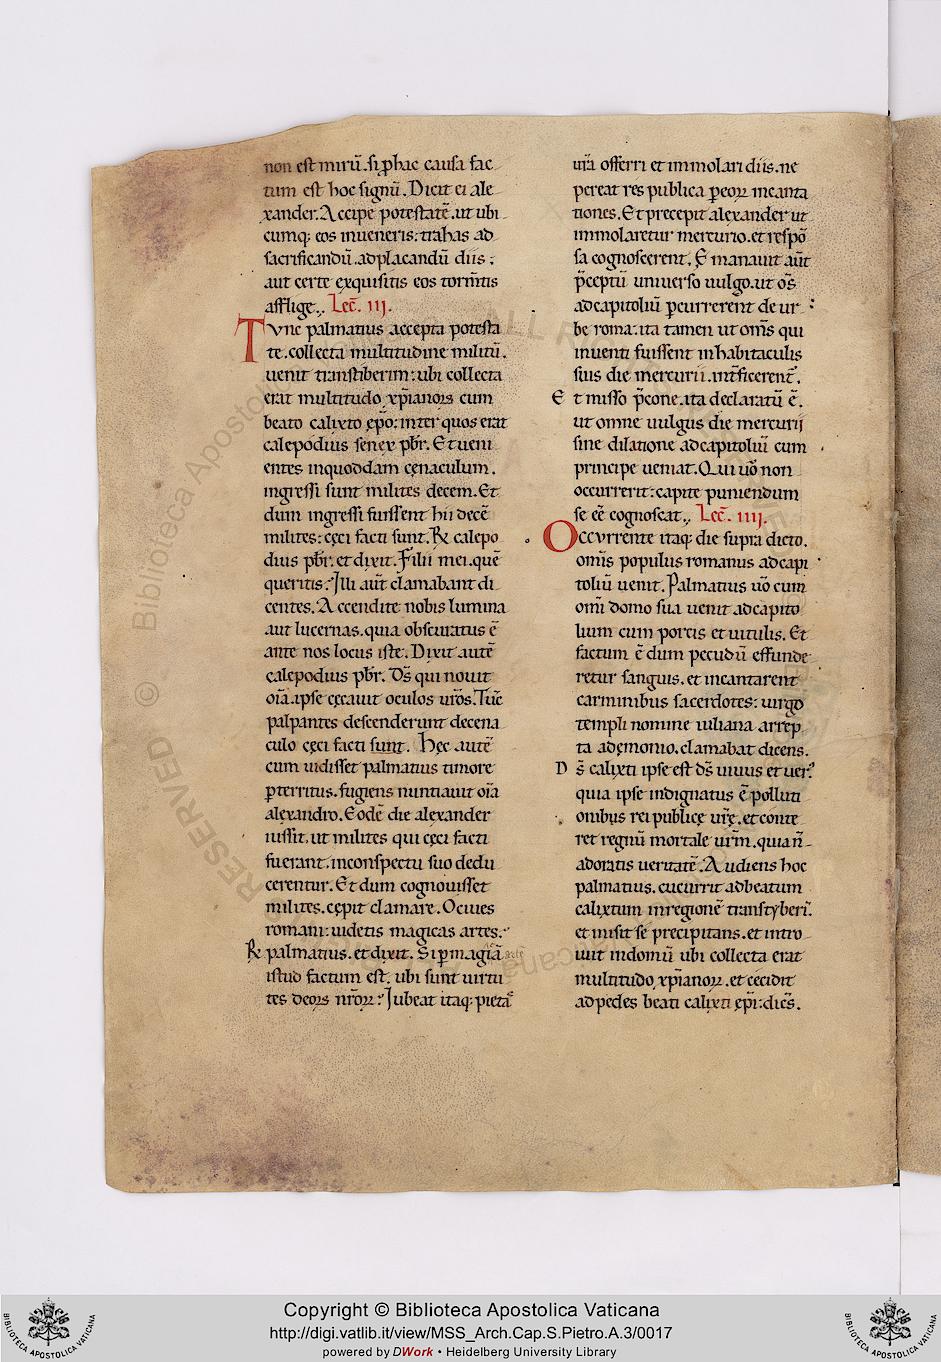 non est mirū. si ꝑ hac causa fac
tum est hoc signū. Dicit ei ale
xander. Accipe potestatē. ut ubi
cumq; eos inueneris: trahas ad
sacrificandū. ad placandū diis;
aut certe exquisitis eos torm̄tis
afflige. Lec̄. III.
Tunc palmatius accepta potesta
te. collecta multitudine militū.
uenit transtiberim: ubi collecta
erat multitudo xp̄ianoꝝ cum
beato calixto ep̄o: inter quos erat
calepodius senex pb̄r. Et ueni
entes in quoddam cenaculum.
ingressi sunt milites decem. Et
dum ingressi fuissent hii decē
milites: cęci facti sunt. R̄ calepo
dius pb̄r. et dixit. Filii mei. quē
queritis? Illi aūt clamabant di
centes. Accendite nobis lumina
aut lucernas. quia obscuratus ē
ante nos locus iste. Dixit autē
calepodius pb̄r. Ds̄ qui nouit
oīa. ipse cęcauit oculos ur̄os. Tūc
palpantes descenderunt de cena
culo cęci facti sunt. Hęc autē
cum uidisset palmatius timore
ꝑterritus. fugiens nuntiauit oīa
alexandro. Eodē die alexander
iussit. ut milites qui cęci facti
fuerant. in conspectu suo dedu
cerentur. Et dum cognouisset
milites. cępit clamare. O ciues
romani: uidetis magicas artes.
R̄ palmatius. et dixit. Si ꝑ magiā
istud factum est. ubi sunt uirtu
tes deoꝝ nr̄oꝝ? Iubeat itaq; pietaˢ
ur̄a offerri et immolari diis. ne
pereat res publica ꝑ eoꝝ incanta
tiones. Et precepit alexander ut
immolaretur mercurio. et respō
sa cognoscerent. Emanauit aūt
p̄ceptū uniuerso uulgo. ut os̄
ad capitoliū ꝑcurrerent de ur
be roma. ita tamen ut oms̄ qui
inuenti fuissent in habitaculis
suis die mercurii. int̄ficerent᷑.
Et misso p̄cone. ita declaratū ē.
ut omne uulgus die mercurij
sine dilatione ad capitoliū cum
principe ueniat. Qui uo̅ non
occurrerit: capite puniendum
se eē cognoscat. Lec̄. IIII.
Occurrente itaq; die supra dicto.
omīs populus romanus ad capi
toliū uenit. Palmatius uo̅ cum
omī domo sua uenit ad capito
lium cum porcis et uitulis. Et
factum ē dum pecudū effunde
retur sanguis. et incantarent
carminibus sacerdotes: uirgo
templi nomine iuliana arrep
ta a dęmonio. clamabat dicens.
Ds̄ calixti ipse est ds̄ uiuus et uerˢ
quia ipse indignatus ē polluti
onibus rei publicę ur̄ę. et conte
ret regnū mortale ur̄m. quia n̄
adoratis ueritatē. Audiens hoc
palmatius. cucurrit ad beatum
calixtum in regionē transtyberī.
et misit se precipitans. et intro
iuit in domū ubi collecta erat
multitudo xp̄ianoꝝ. et cecidit
ad pedes beati calixti ep̄i: dics̄.
Copyright © Biblioteca Apostolica Vaticana
http://digi.vatlib.it/view/MSS_Arch.Cap.S.Pietro.A.3/0017
powered by DWork • Heidelberg University Library